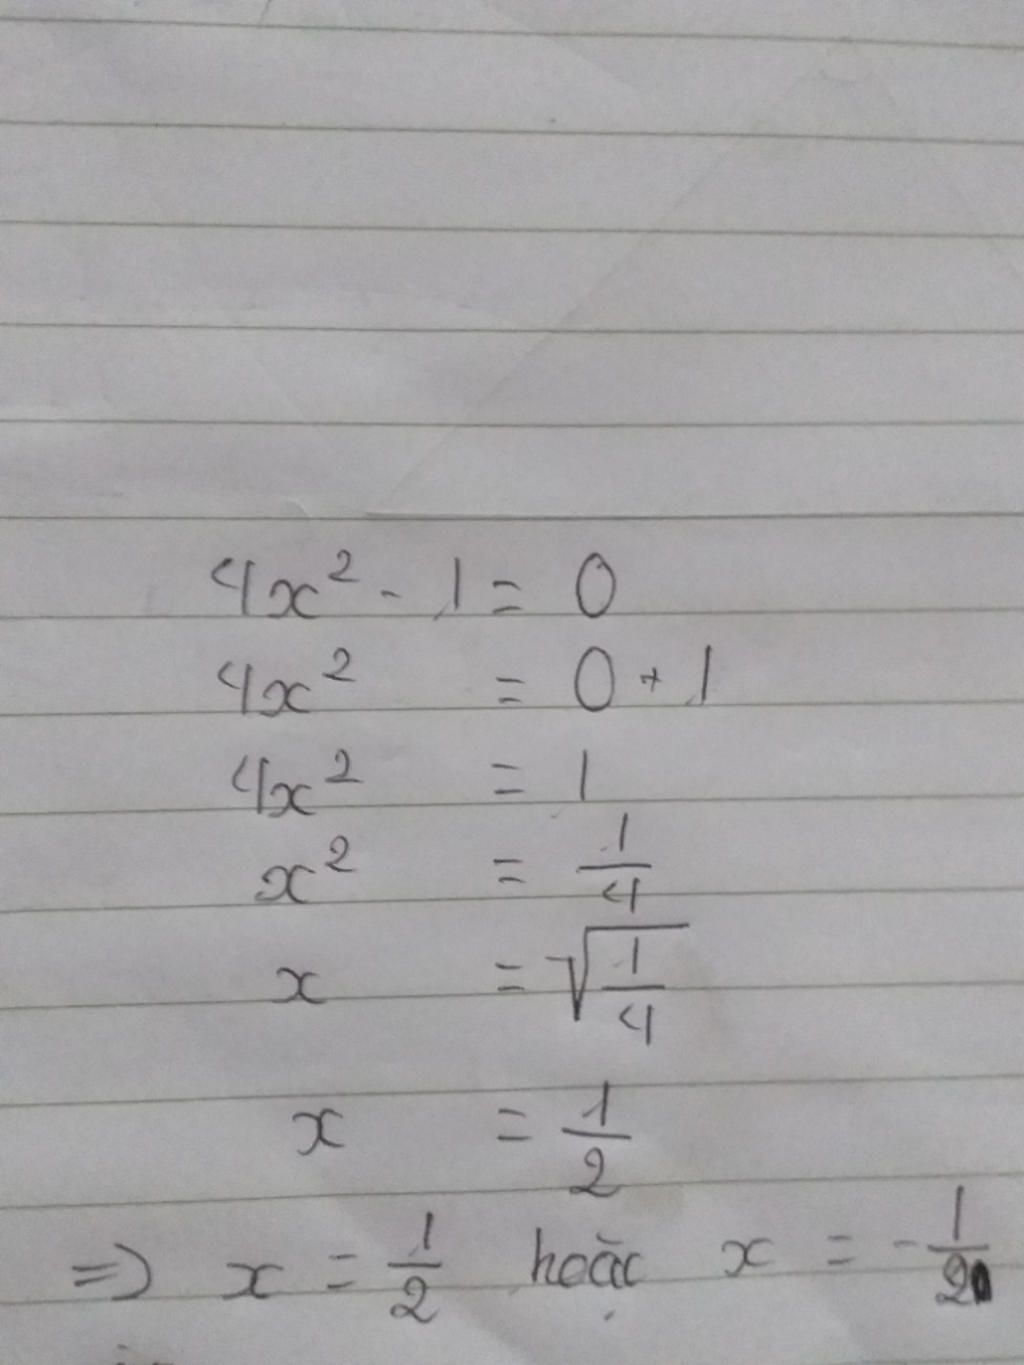 4x² - 1 = 0
4x² = 0 + 1
4x² = 1
x² = 1/4
x = √(1/4)
x = 1/2
=> x = 1/2 hoặc x = -1/2